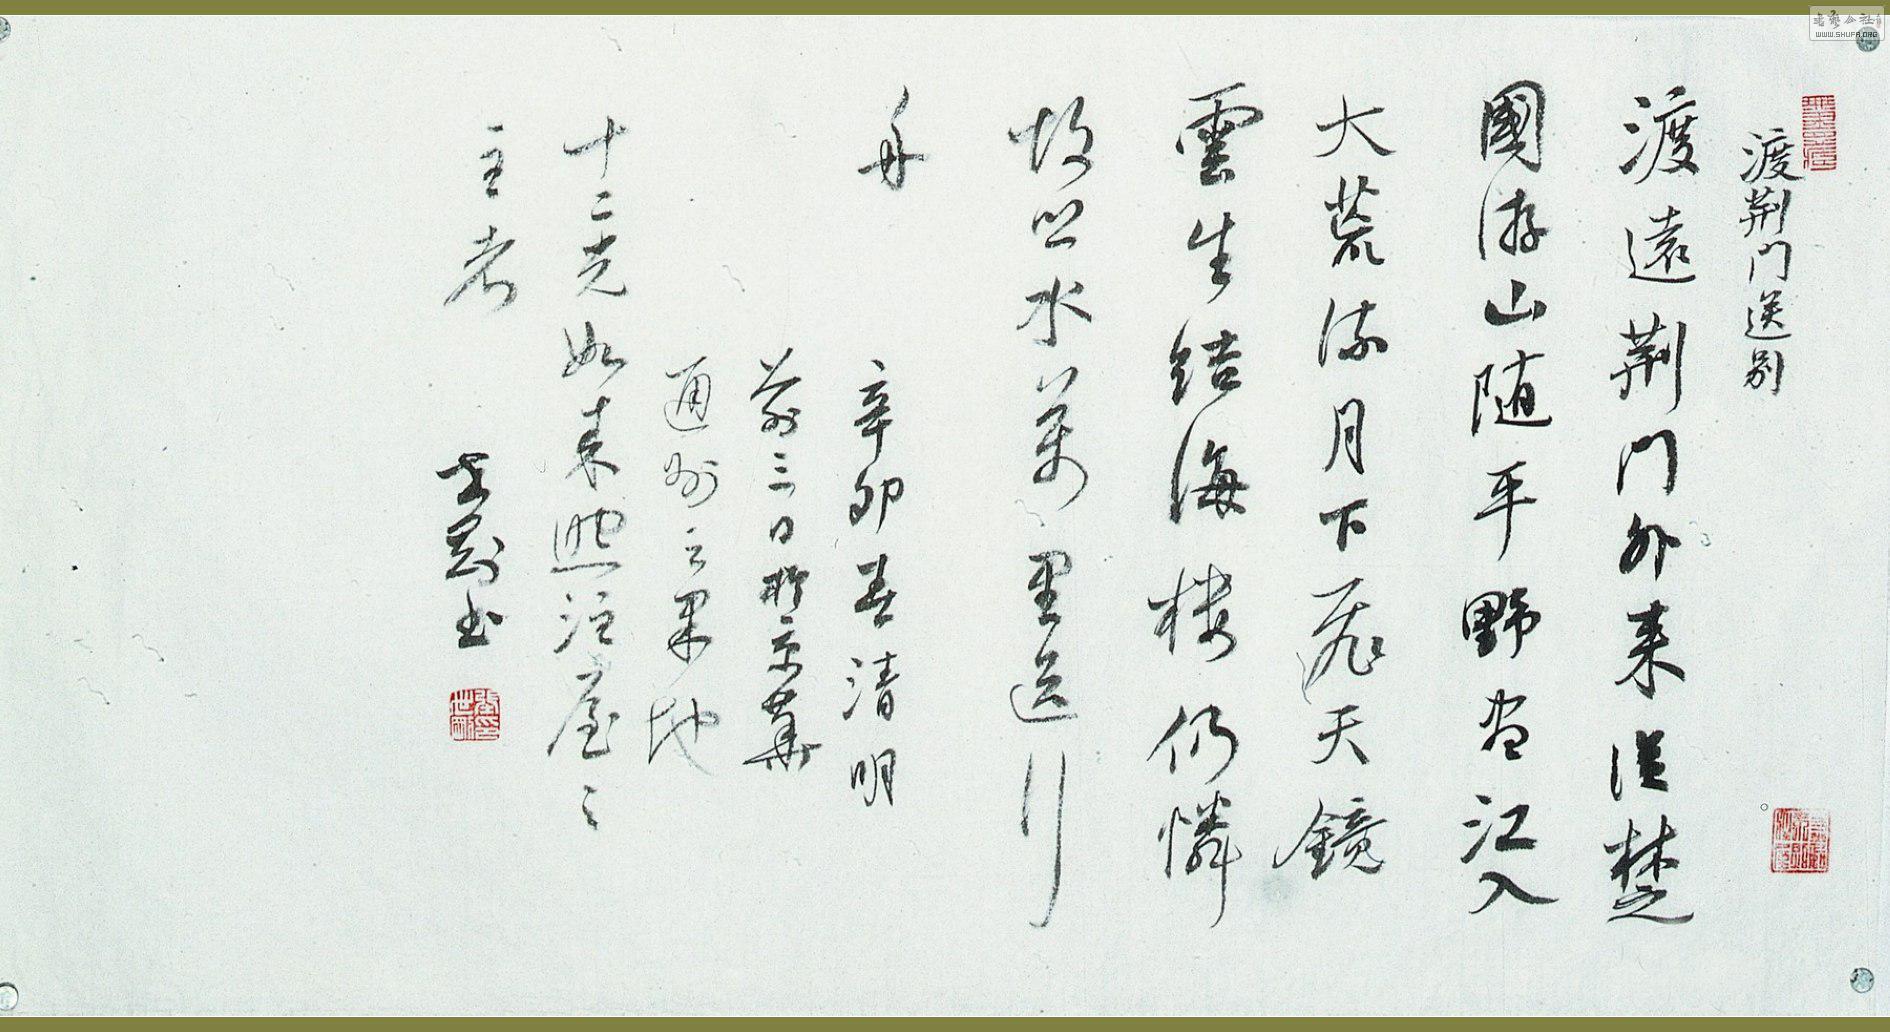 渡荆门送别
渡遠荆门外来從楚
國游山随平野尽江入
大荒流月下飛天鏡
雲生結海楼仍憐
故乡水萬里送行
舟
辛卯春清明
前三日於京華
通州之果地
十二光如来照
主者
书
书艺公社
WWW.SHUFA.ORG